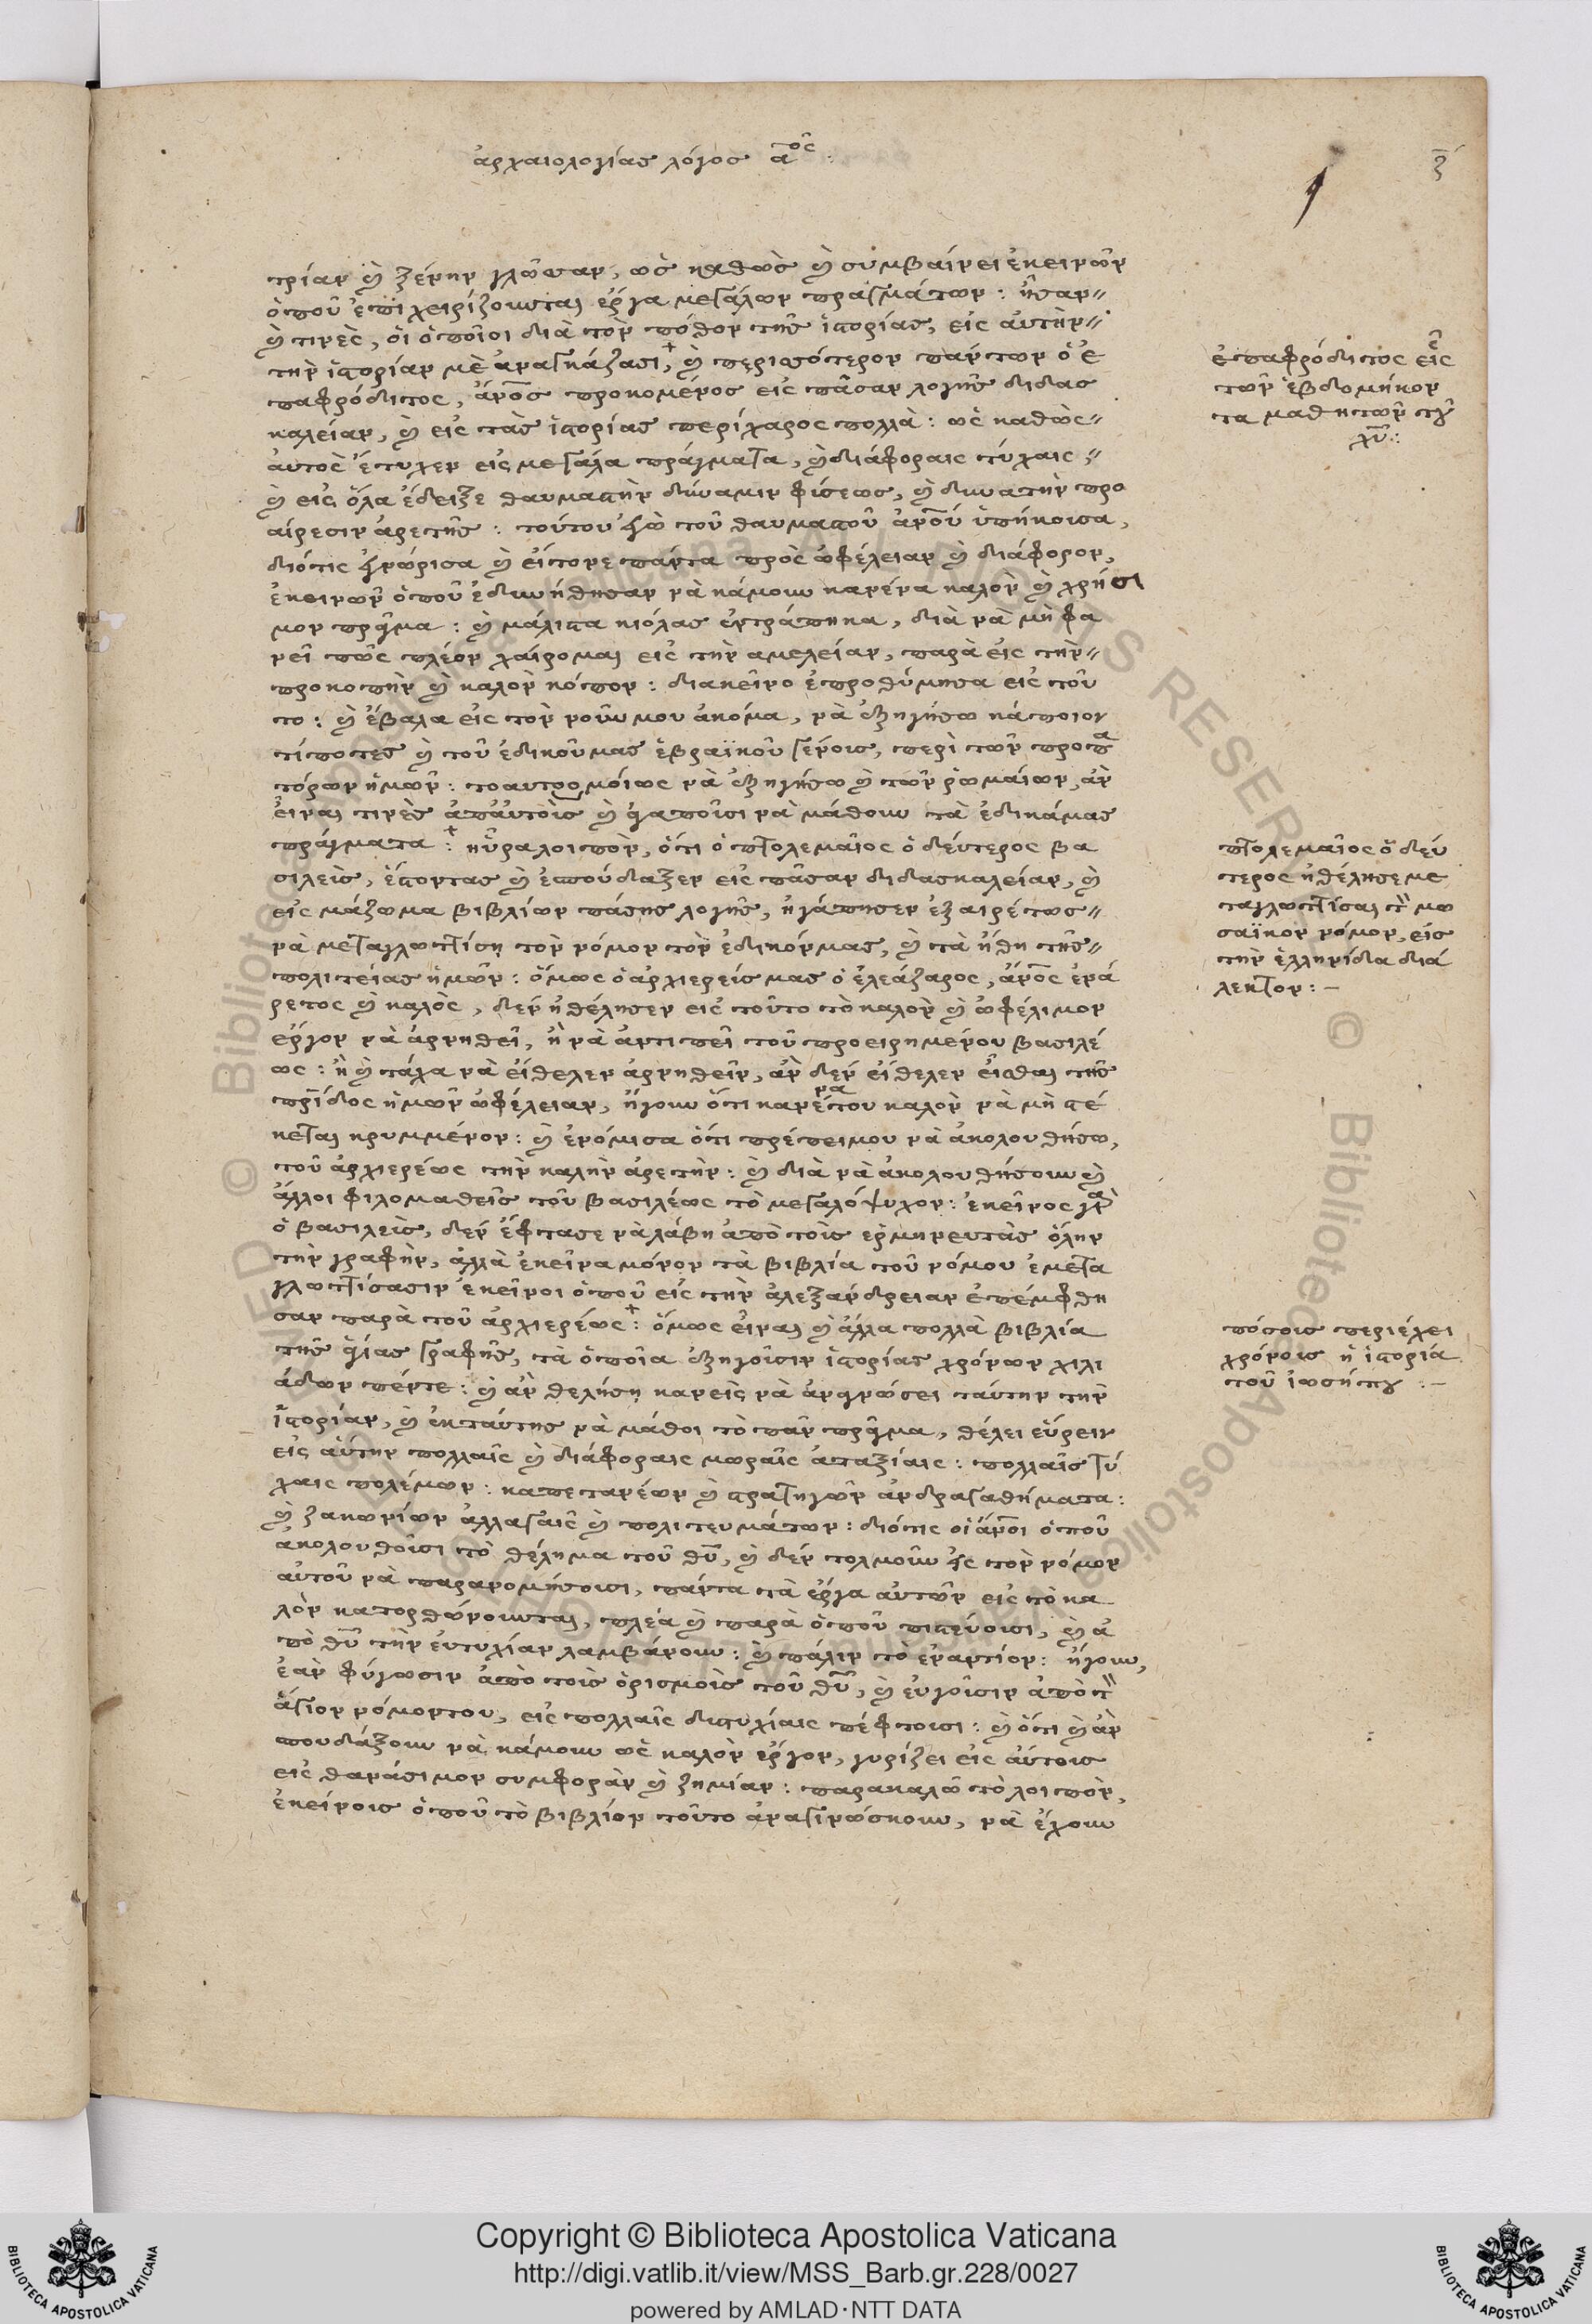 ἀρχαιολογίας λόγος αος :
ξ
τρίαν καὶ ξένην γλῶσσαν, ὡς καθὼς καὶ συμβαίνει ἐκεινῶν
ὁποῦ ἐπιχειρίζουνται ἔργα μεγάλων πραγμάτων : ἦσαν
καὶ τινὲς, οἱ ὁποῖοι διὰ τὸν πόθον τῆς ἱστορίας, εἰς αὐτὴν
τὴν ἱστορίαν μὲ ἀναγκάζασι, καὶ περισσότερον πάντων ὁ ἐ
παφρόδιτος, ἄνος προκομένος εἰς πᾶσαν λογῆς διδας
καλείαν, καὶ εἰς τὰς ἱστορίας περίχαρος πολλὰ : ὡς καθὼς
αὐτὸς ἔτυχεν εἰς μεγάλα πράγματα, καὶ διάφοραις τύχαις,
καὶ εἰς ὅλα ἔδειξε θαυμαστὴν δύναμιν φύσεως, καὶ δυνατὴν προ
αίρεσιν ἀρετῆς : τούτου ἐγὼ τοῦ θαυμαστοῦ ἀνου ὑπήκουσα,
διότις ἐγνώρισα καὶ εἴπονε πάντα πρὸς ὠφέλειαν καὶ διάφορον,
ἐκεινῶν ὁποῦ ἐδυνήθησαν νὰ κάμουν κανένα καλὸν καὶ χρήσι
μον πρᾶγμα : καὶ μάλιστα κιόλας ἐντράπηκα, διὰ νὰ μὴ φα
νεῖ πῶς πλέον χαίρομαι εἰς τὴν αμελείαν, παρὰ εἰς τὴν
προκοπὴν καὶ καλὸν κόπον : διακεῖνο ἐπροθύμησα εἰς τοῦ
το : καὶ ἔβαλα εἰς τὸν νοῦν μου ἀκόμα, νὰ ἐξηγήσω κάποιον
τίποτες καὶ τοῦ ἐδικοῦ μας ἑβραϊκοῦ γένους, περὶ τῶν προπα
τόρων ἡμῶν : τοαυτρομόίως νὰ ἐξηγήσω καὶ τῶν ρωμαίων, ἀν
εἶναι τινὲς ἀπαὐτοὺς καὶ ἀγαποῦσι νὰ μάθουν τὰ ἐδικάμας
πράγματα : ηὗρα λοιπὸν, ὅτι ὁ πτολεμαῖος ὁ δεύτερος βα
σιλεὺς, ἔστοντας καὶ ἐσπούδαζεν εἰς πᾶσαν διδασκαλείαν, καὶ
εἰς μάζωμα βιβλίων πάσης λογῆς, ἠγάπησεν ἐξαιρέτως
νὰ μεταγλωττίση τὸν νόμον τὸν ἐδικόνμας, καὶ τὰ ἤθη τῆς
πολιτείας ἡμῶν : ὅμως ὁ αρχιερεύς μας ὁ ἐλεάζαρος, ἄνος ἐνά
ρετος καὶ καλὸς, δὲν ἠθέλησεν εἰς τοῦτο τὸ καλὸν καὶ ὠφέλιμον
ἔργον νὰ ἀρνηθεῖ, ἢ νὰ ἀντιπεῖ τοῦ προειρημένου βασιλέ
ως : ἢ καὶ τάχα νὰ εἴθελεν ἀρνηθεῖν, ἀν δὲν εἴθελεν εἶσθαι τῆς
πρίδος ἡμῶν ὠφέλειαν, ἤγουν ὅτι κανένα του καλὸν νὰ μὴ στέ
κεται κρυμμένον : καὶ ἐνόμισα ὅτι πρέπει μου νὰ ἀκολουθήσω,
τοῦ ἀρχιερέως τὴν καλὴν ἀρετὴν : καὶ διὰ νὰ ἀκολουθήσουν καὶ
ἄλλοι φιλομαθεῖς τοῦ βασιλέως τὸ μεγαλόψυχον : ἐκεῖνος γὰρ
ὁ βασιλεὺς, δὲν ἔφτασε νὰ λάβη ἀπὸ τοὺς ἑρμηνευτὰς ὅλην
τὴν γραφὴν, ἀλλὰ ἐκεῖνα μόνον τὰ βιβλία τοῦ νόμου ἐμετα
γλωττίσασιν ἐκεῖνοι ὁποῦ εἰς τὴν ἀλεξάνδρειαν ἐπέμφθη
σαν παρὰ τοῦ ἀρχιερέως : ὅμως εἶναι καὶ ἄλλα πολλὰ βιβλία
τῆς ἁγίας γραφῆς, τὰ ὁποῖα ἐξηγοῦσιν ἱστορίας χρόνων χιλι
άδων πέντε : καὶ ἀν θελήση κανεὶς νὰ ἀναγνώσει ταύτην τὴν
ἱστορίαν, καὶ ἐκ ταύτης νὰ μάθοι τὸ πᾶν πρᾶγμα, θέλει εὕρειν
εἰς αὐτὴν πολλαῖς καὶ διάφοραις μωραῖς ἀταξίαις : πολλαῖς τύ
χαις πολέμων : καπετανέων καὶ στρατηγῶν ἀνδραγαθήματα :
καὶ ζακωνίων ἀλλαγαῖς καὶ πολιτευμάτων : διότις οἱ ἄνοι ὁποῦ
ἀκολουθοῦσι τὸ θέλημα τοῦ θυ, καὶ δὲν τολμοῦν εἰς τὸν νόμον
αὐτοῦ νὰ παρανομήσουσι, πάντα τὰ ἔργα αὐτῶν εἰς τὸ κα
λὸν κατορθώνουνται, πλέα καὶ παρὰ ὁποῦ πιστεύουσι, καὶ ἀ
πὸ θυ τὴν εὐτυχίαν λαμβάνουν : καὶ πάλιν τὸ ἐναντίον : ἤγουν,
ἐὰν φύγωσιν ἀπὸ τοὺς ὁρισμοὺς τοῦ θυ, καὶ εὐγοῦσιν ἀπὸ τὸν
ἅγιον νόμοντου, εἰς πολλαῖς δυστυχίαις πέφτουσι : καὶ ὅτι καὶ ἀν
σπουδάξουν νὰ κάμουν ὡς καλὸν ἔργον, γυρίζει εἰς αὐτοὺς
εἰς θανάσιμον συμφορὰν καὶ ζημίαν : παρακαλῶ τὸ λοιπὸν,
ἐκείνους ὁποῦ τὸ βιβλίον τοῦτο ἀναγινώσκουν, νὰ ἔχουν
ἐπαφρόδιτος εἷς
τῶν ἑβδομήκον
τα μαθητῶν τοῦ
χυ :
πτολεμαῖος ὁ δεύ
τερος ἠθέλησε με
ταγλωττίσαι τὸν μω
σαϊκον νόμον, εἰς
τὴν ἑλληνίδα διά
λεκτον : –
πόσους περιέχει
χρόνους ἡ ἱστορία
τοῦ ἰωσήπου : –
© Biblioteca Apostolica Vaticana ALL RIGHTS RESERVED
Copyright © Biblioteca Apostolica Vaticana
http://digi.vatlib.it/view/MSS_Barb.gr.228/0027
powered by AMLAD·NTT DATA
BIBLIOTECA APOSTOLICA VATICANA
BIBLIOTECA APOSTOLICA VATICANA